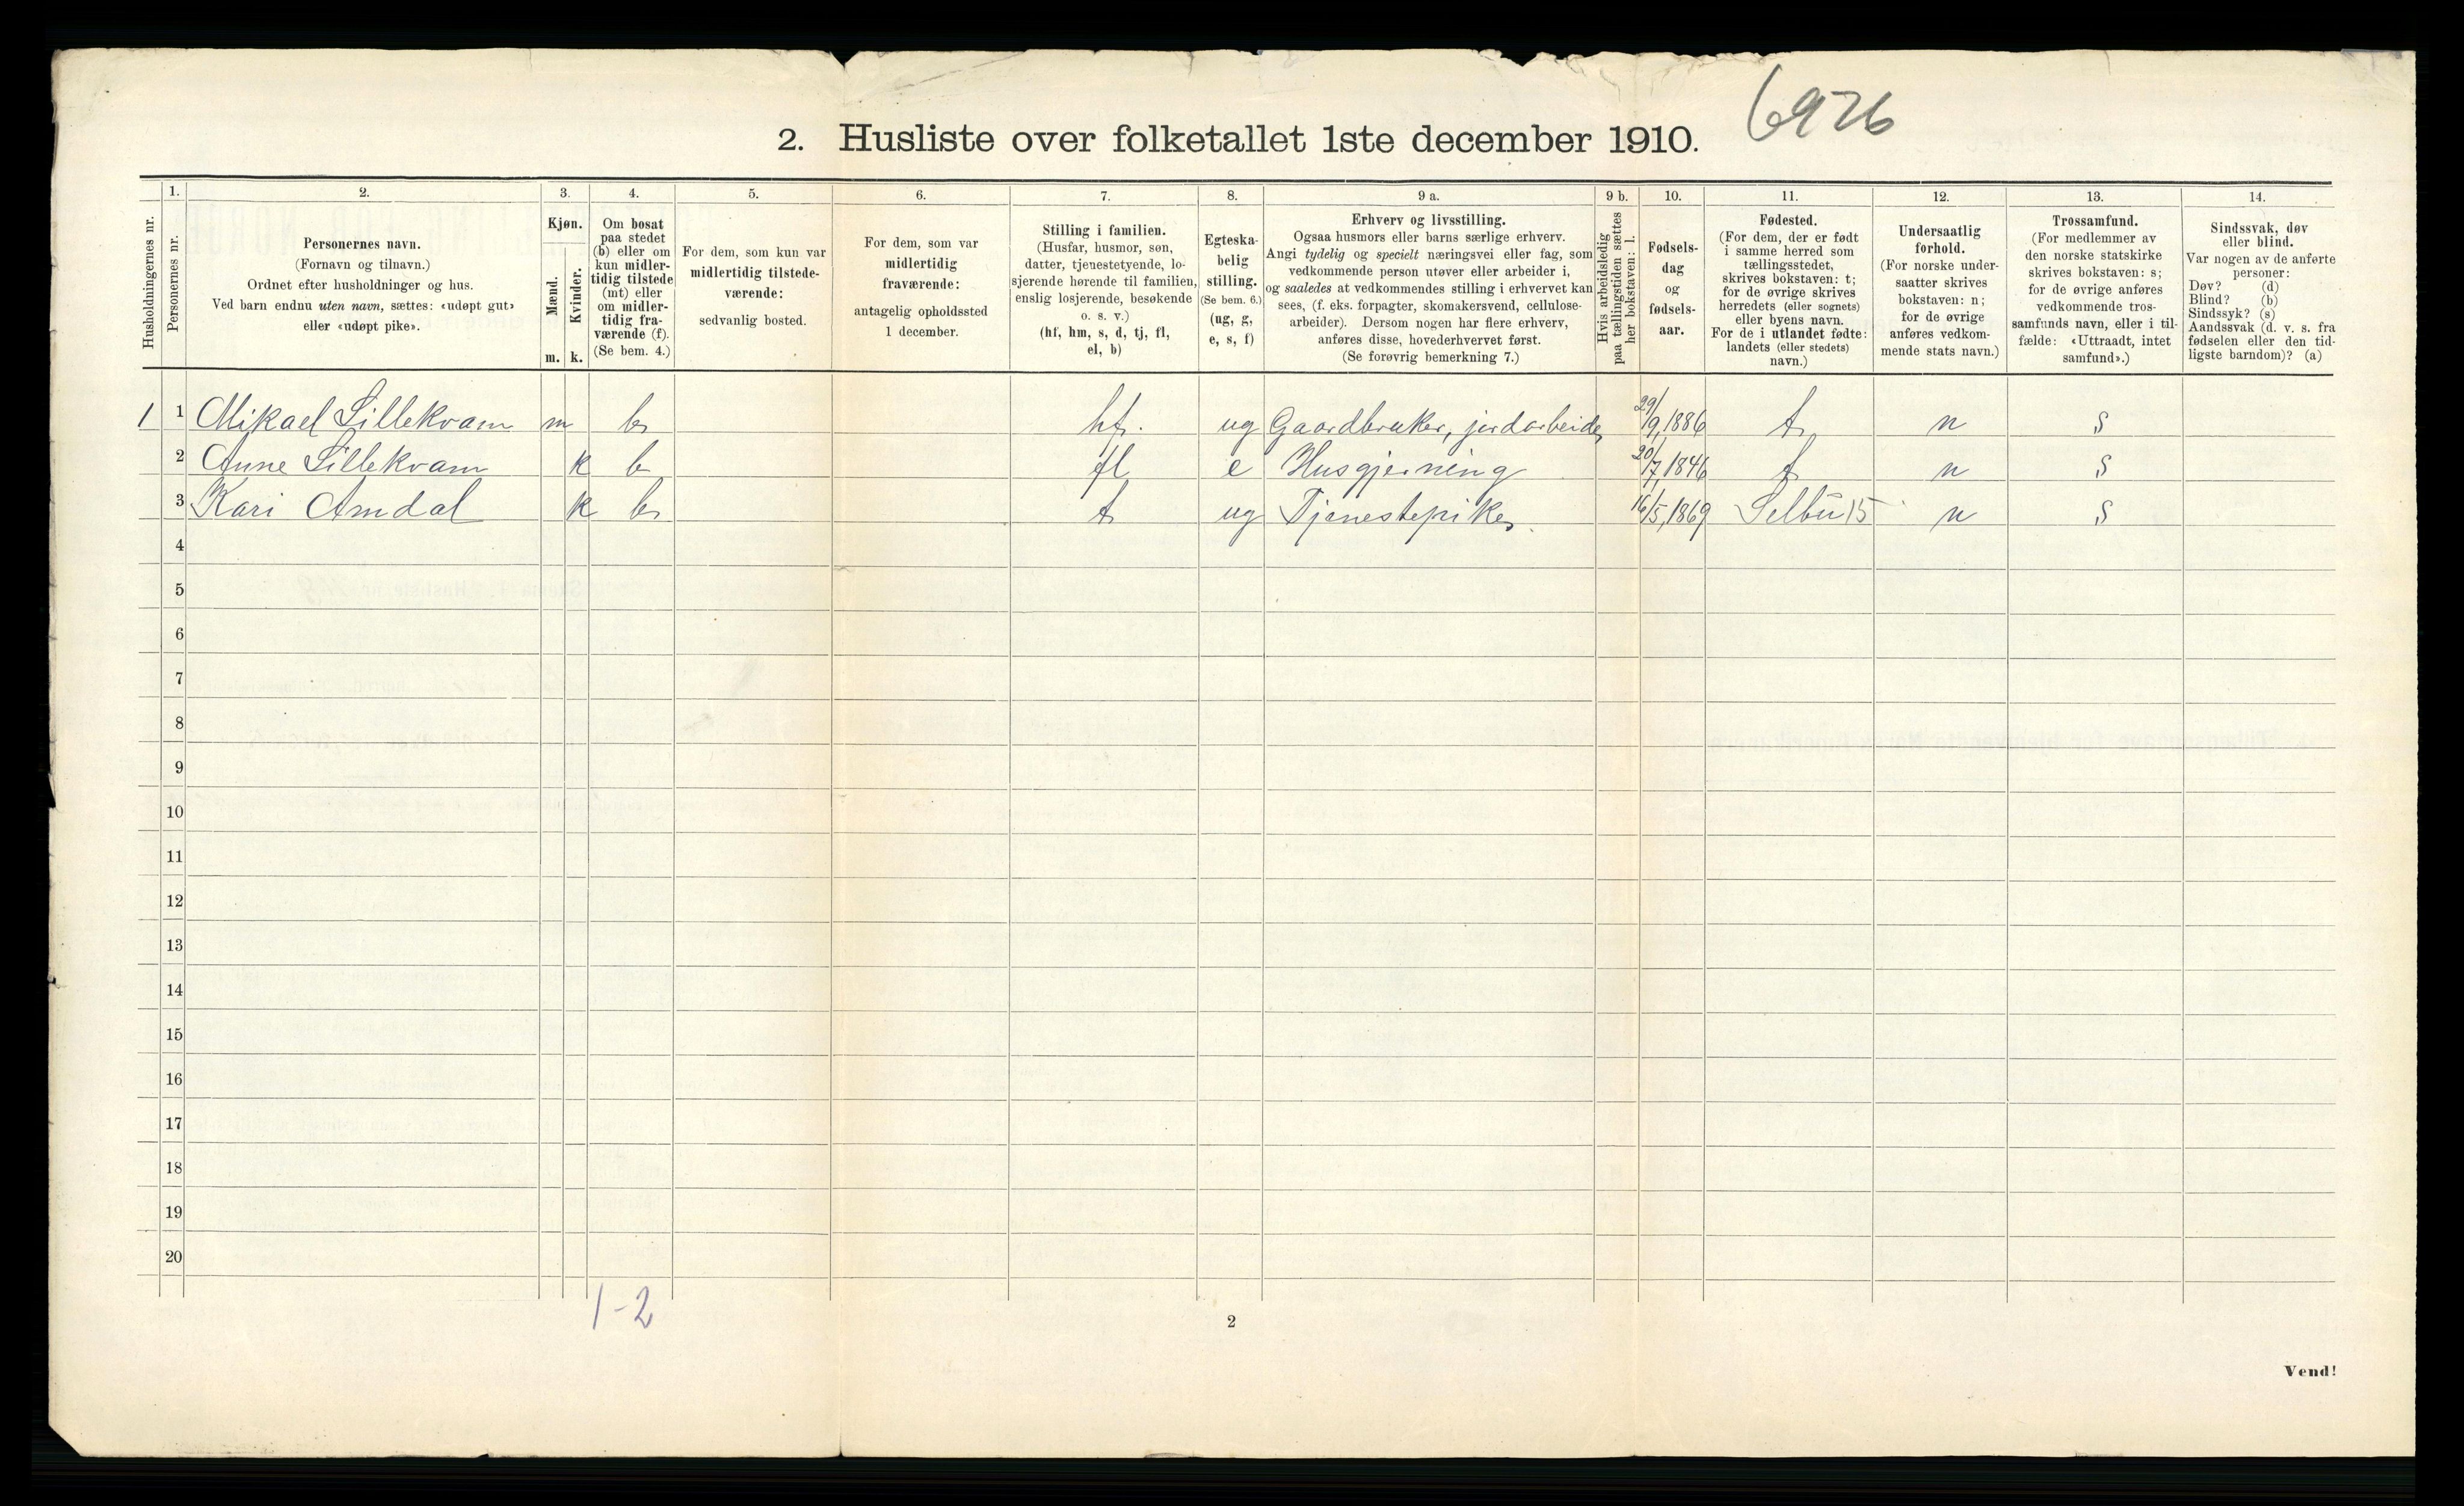 6926
2. Husliste over folketallet 1ste december 1910.
Husholdningernes nr.
1.
Personernes nr.
2.
Personernes navn.
(Fornavn og tilnavn.)
Ordnet efter husholdninger og hus.
Ved barn endnu uten navn, sættes: «udøpt gut»
eller «udøpt pike».
3.
Kjøn.
Mænd.
Kvinder.
m. k.
4.
Om bosat
paa stedet
(b) eller om
kun midler-
tidig tilstede
(mt) eller
om midler-
tidig fra-
værende (f).
(Se bem. 4.)
5.
For dem, som kun var
midlertidig tilstede-
værende:
sedvanlig bosted.
6.
For dem, som var
midlertidig
fraværende:
antagelig opholdssted
1 december.
7.
Stilling i familien.
(Husfar, husmor, søn,
datter, tjenestetyende, lo-
sjerende hørende til familien,
enslig losjerende, besøkende
o. s. v.)
(hf, hm, s, d, tj, fl,
el, b)
8.
Egteska-
belig
stilling.
(Se bem. 6.)
(ug, g,
e, s, f)
9 a.
Erhverv og livsstilling.
Ogsaa husmors eller barns særlige erhverv.
Angi tydelig og specielt næringsvei eller fag, som
vedkommende person utøver eller arbeider i,
og saaledes at vedkommendes stilling i erhvervet kan
sees, (f. eks. forpagter, skomakersvend, cellulose-
arbeider). Dersom nogen har flere erhverv,
anføres disse, hovederhvervet først.
(Se forøvrig bemerkning 7.)
9 b.
Hvis arbeidsledig
paa tællingstiden sættes
her bokstaven: l.
10.
Fødsels-
dag
og
fødsels-
aar.
11.
Fødested.
(For dem, der er født
i samme herred som
tællingsstedet,
skrives bokstaven: t;
for de øvrige skrives
herredets (eller sognets)
eller byens navn.
For de i utlandet fødte:
landets (eller stedets)
navn.)
12.
Undersaatlig
forhold.
(For norske under-
saatter skrives
bokstaven: n;
for de øvrige
anføres vedkom-
mende stats navn.)
13.
Trossamfund.
(For medlemmer av
den norske statskirke
skrives bokstaven: s;
for de øvrige anføres
vedkommende tros-
samfunds navn, eller i til-
fælde: «Uttraadt, intet
samfund».)
14.
Sindssvak, døv
eller blind.
Var nogen av de anførte
personer:
Døv? (d)
Blind? (b)
Sindssyk? (s)
Aandssvak (d. v. s. fra
fødselen eller den tid-
ligste barndom)? (a)
1 1 Mikael Lillekvam m b hf. ug Gaardbruker, jordarbeider 29/9, 1886 t n s
2 Anne Lillekvam k b fl e Husgjerning 20/7, 1846 t n s
3 Kari Amdal k b t ug Tjenestepike 16/5, 1869 Selbu 15 n s
4
5
6
7
8
9
10
11
12
13
14
15
16
17
18
19
20
1-2
2
Vend!